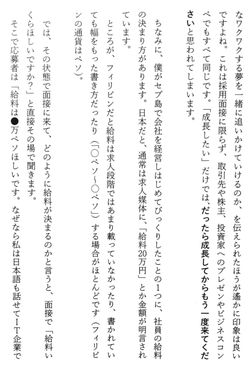 なワクワクする夢を一緒に追いかけていけるのか、を伝えられたほうが遥かに印象は良い
ですよね。これは採用面接に限らず、取引先や株主、投資家へのプレゼンやビジネスコン
ペでもすべて同じです。「成長したい」だけでは、だったら成長してからもう一度来てくだ
さいと思われてしまいます。
ちなみに、僕がセブ島で会社を経営しはじめてびっくりしたことの1つに、社員の給料
の決まり方があります。日本だと、通常は求人媒体に、「給料20万円」とか金額が明言され
ています。
ところが、フィリピンだと給料は求人段階ではあまり載っていなかったり、書かれてい
ても幅をもった書き方だったり(「〇ペソ〜〇ペソ」)する場合がほとんどです(フィリピ
ンの通貨はペソ)。
では、その状態で面接に来て、どのように給料が決まるのかと言うと、面接で「給料い
くらほしいですか?」と直接その場で聞きます。
そこで応募者は「給料は●万ペソほしいです。なぜなら私は日本語も話せてIT企業で